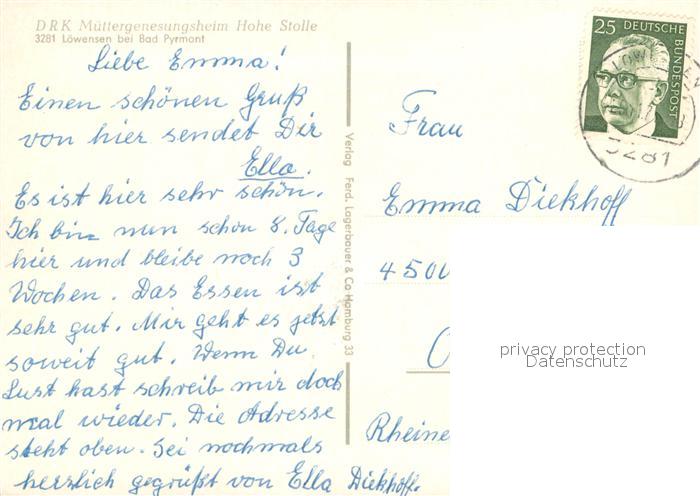 DRK Müttergenesungsheim Hohe Stolle
3281 Löwensen bei Bad Pyrmont
Liebe Emma!
Einen schönen Gruß
von hier sendet Dir
Ella.
Es ist hier sehr schön.
Ich bin nun schon 8. Tage
hier und bleibe noch 3
Wochen. Das Essen ist
sehr gut. Mir geht es jetzt
soweit gut. Wenn Du
Lust hast schreib mir doch
mal wieder. Die Adresse
steht oben. Sei nochmals
herzlich gegrüßt von Ella Diekhoff.
Verlag Ferd. Lagerbauer & Co Hamburg 33
25 DEUTSCHE BUNDESPOST
3281
Frau
Emma Diekhoff
4500
Rheine
privacy protection
Datenschutz